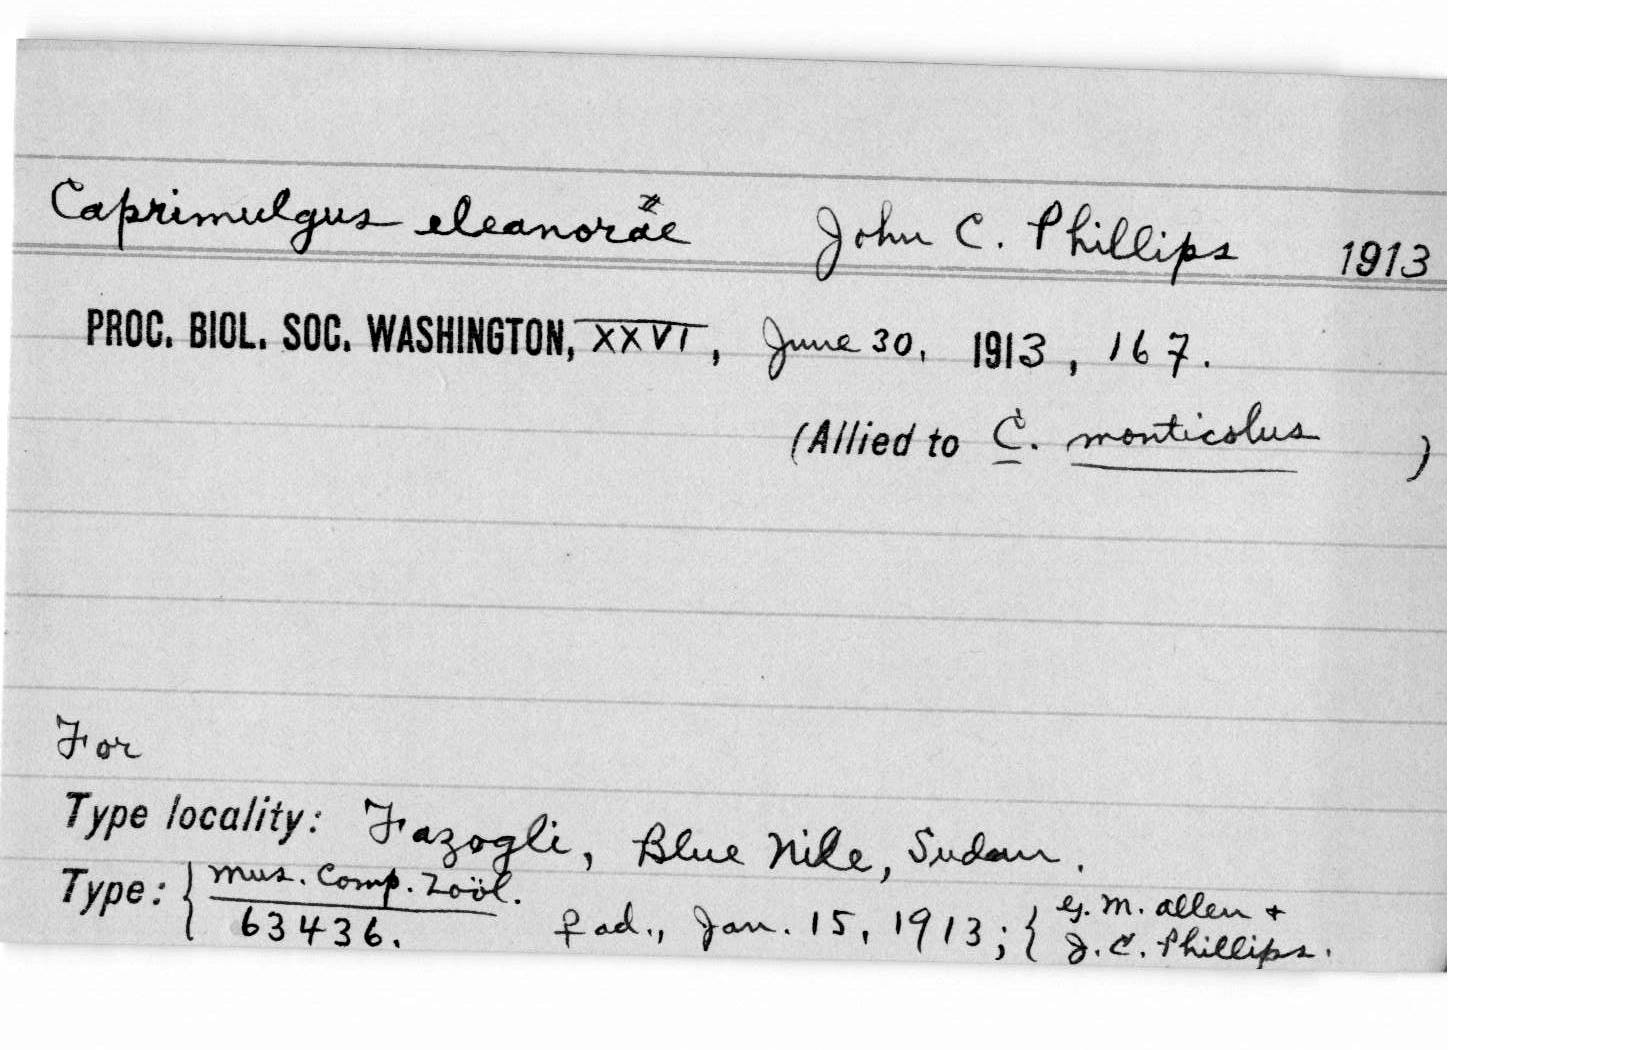 Caprimulgus eleanoræ John C. Phillips 1913
PROC. BIOL. SOC. WASHINGTON, XXVI, June 30, 1913, 167.
(Allied to C. monticolus )
For
Type locality: Fazogli, Blue Nile, Sudan.
Type: { Mus. Comp. Zoöl.
63436. ♀ ad., Jan. 15, 1913; { G. M. Allen +
J. C. Phillips.